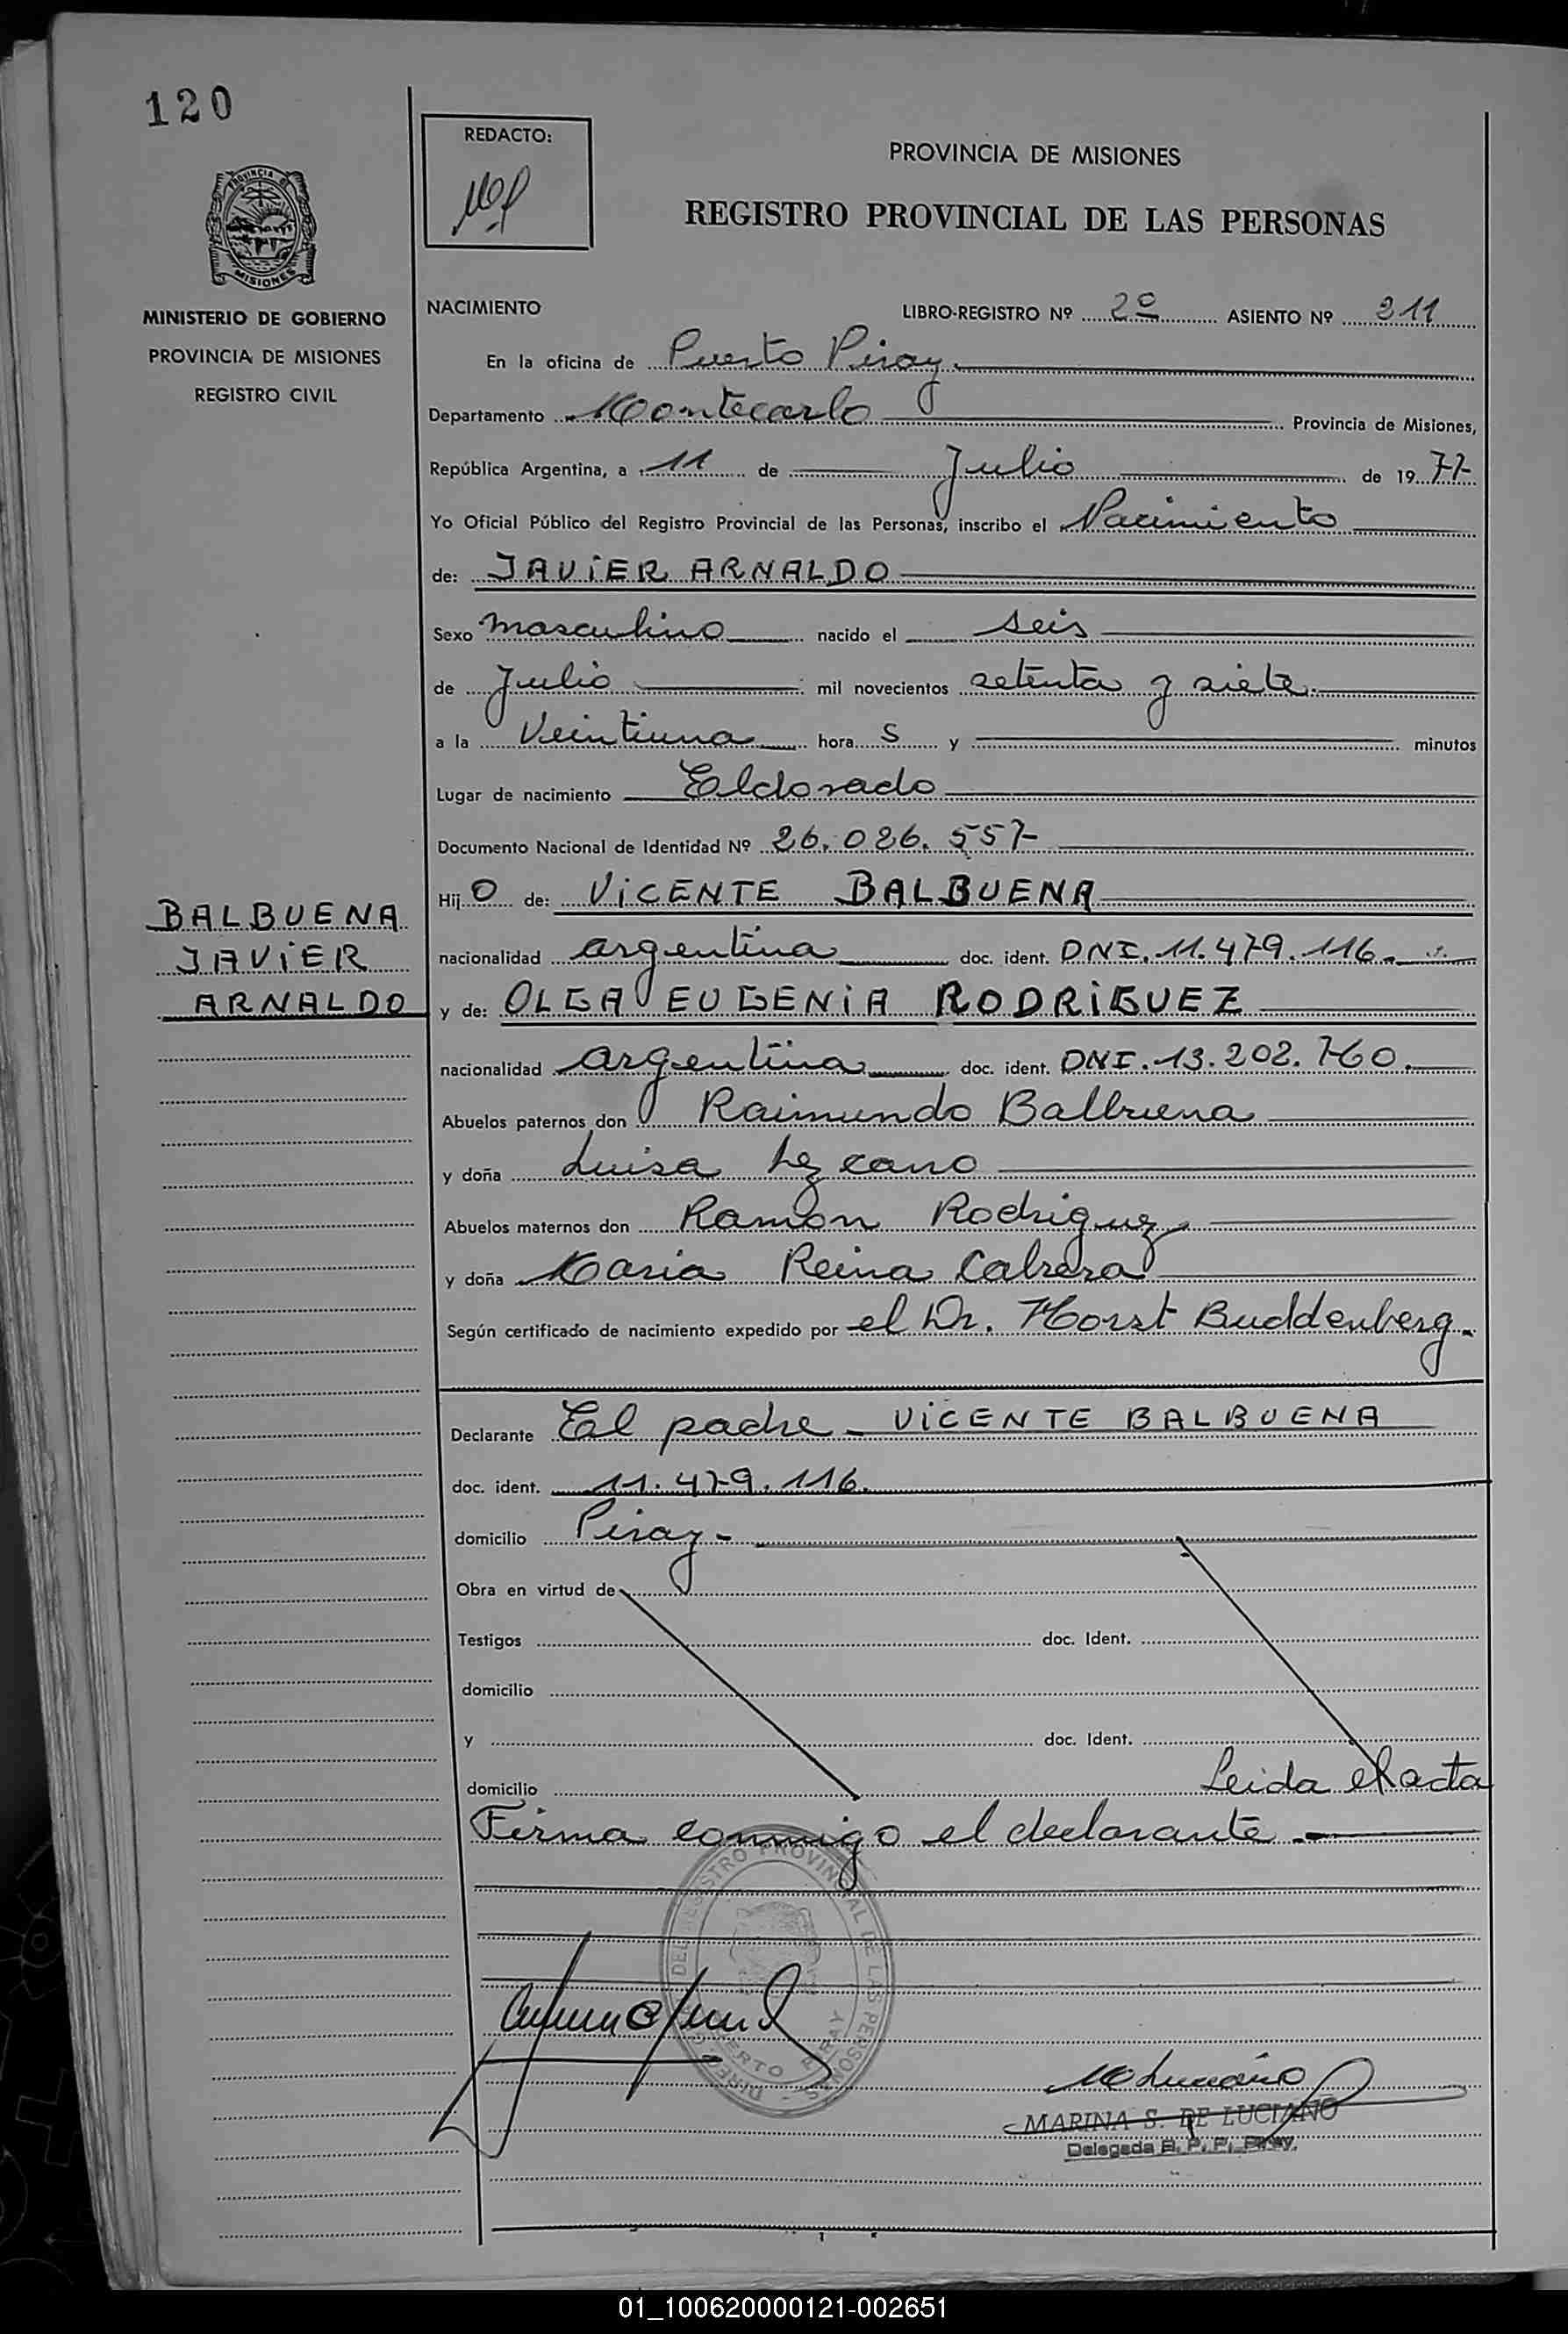 120
REDACTO:
PROVINCIA DE MISIONES
REGISTRO PROVINCIAL DE LAS PERSONAS
PROVINCIA DE
MISIONES
MINISTERIO DE GOBIERNO
PROVINCIA DE MISIONES
REGISTRO CIVIL
NACIMIENTO
LIBRO-REGISTRO Nº 2º ASIENTO Nº 211
En la oficina de Puerto Piray
Departamento Montecarlo Provincia de Misiones,
República Argentina, a 11 de Julio de 1977
Yo Oficial Público del Registro Provincial de las Personas, inscribo el Nacimiento
de: JAVIER ARNALDO
Sexo masculino nacido el seis
de Julio mil novecientos setenta y siete
a la Veintiuna hora s y minutos
Lugar de nacimiento Eldorado
Documento Nacional de Identidad Nº 26.026.557
Hij o de: VICENTE BALBUENA
BALBUENA
JAVIER
ARNALDO
nacionalidad argentina doc. ident. DNI. 11.479.116.
y de: OLGA EUGENIA RODRIGUEZ
nacionalidad argentina doc. ident. DNI. 13.202.760.
Abuelos paternos don Raimundo Balbuena
y doña Luisa Lezcano
Abuelos maternos don Ramón Rodriguez
y doña Maria Reina Cabrera
Según certificado de nacimiento expedido por el Dr. Horst Buddenberg.
Declarante El padre - VICENTE BALBUENA
doc. ident. 11.479.116.
domicilio Piray-
Obra en virtud de
Testigos doc. Ident.
domicilio
y doc. Ident.
domicilio Leida el acta
Firma conmigo el declarante.
REGISTRO PROVINCIAL DE LAS PERSONAS
PUERTO PIRAY
MARINA S. DE LUCIANO
Delegada R. P. P. Piray.
01_100620000121-002651